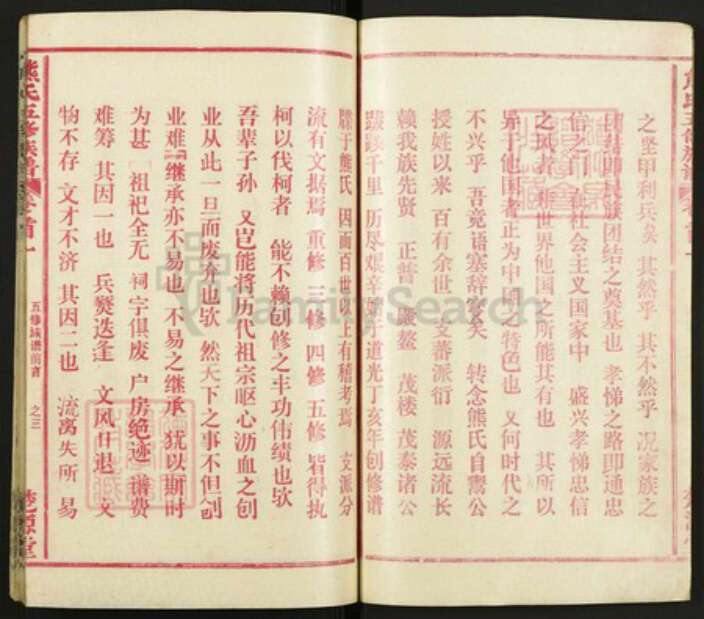 之坚甲利兵矣 其然乎 其不然乎 况家族之
团结即民族团结之奠基也 孝悌之路即通忠
信之门 在社会主义国家中 盛兴孝悌忠信
之风者 积世界他国之所能其有也 其所以
异于他国者正为中国之特色也 又何时代之
不兴乎 吾竟语塞辞穷矣 转念熊氏自鹭公
授姓以来 百有余世 支蕃派衍 源远流长
赖我族先贤 正普 殿鳌 茂楼 茂泰诸公
跋践千里 历尽艰辛 于道光丁亥年创修谱
牒于熊氏 因而百世以上有稽考焉 支派分
流有文据焉 重修 三修 四修 五修 皆得执
柯以伐柯者 能不赖创修之丰功伟绩也欤
吾辈子孙 又岂能将历代祖宗呕心沥血之创
业从此一旦而废弃也欤 然天下之事不但创
业难 继承亦不易也 不易之继承 犹以斯时
为甚 祖祀全无 祠宇俱废 户房绝迹 谱费
难筹 其因一也 兵燹迭逢 文风日退 文
物不存 文才不济 其因二也 流离失所 易
熊氏五修族谱
卷首一
五修族谱前言 之三
FamilySearch